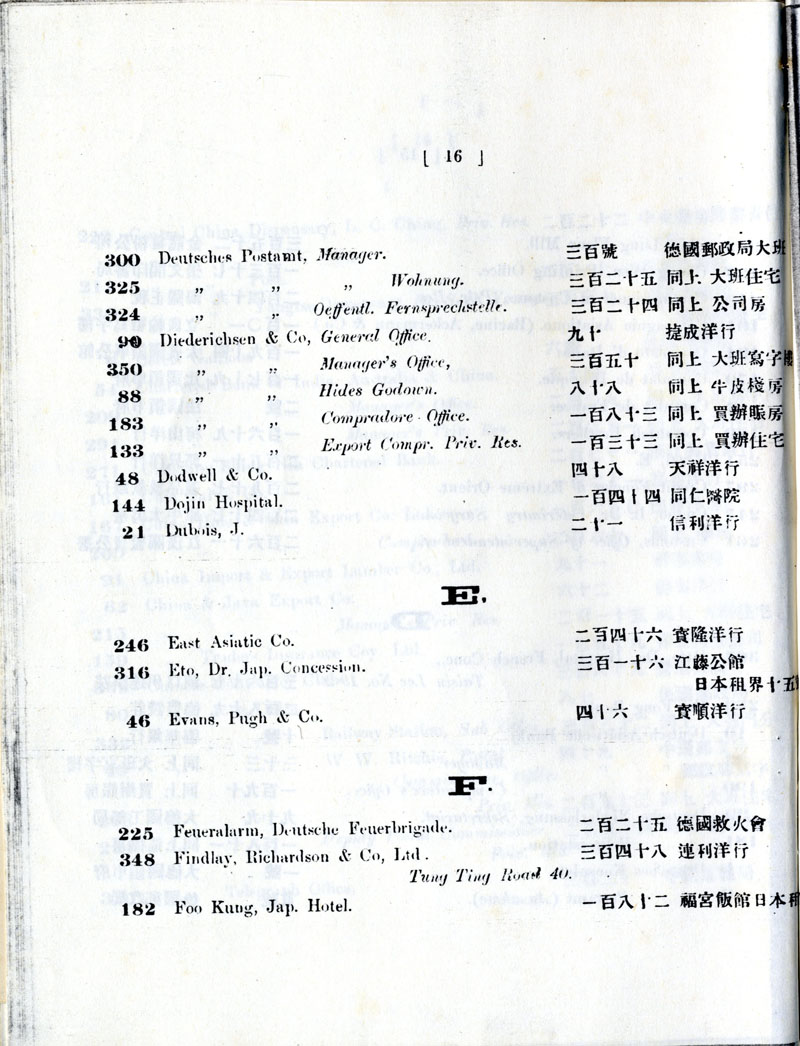 [ 16 ]
300 Deutsches Postamt, Manager. 三百號 德國郵政局大班
325 „ „ „ Wohnung. 三百二十五 同上 大班住宅
324 „ „ Oeffentl. Fernsprechstelle. 三百二十四 同上 公司房
90 Diederichsen & Co, General Office. 九十 捷成洋行
350 „ „ Manager's Office, 三百五十 同上 大班寫字樓
88 „ „ Hides Godown. 八十八 同上 牛皮棧房
183 „ „ Compradore Office. 一百八十三 同上 買辦賬房
133 „ „ Export Compr. Priv. Res. 一百三十三 同上 買辦住宅
48 Dodwell & Co. 四十八 天祥洋行
144 Dojin Hospital. 一百四十四 同仁醫院
21 Dubois, J. 二十一 信利洋行
E.
246 East Asiatic Co. 二百四十六 寶隆洋行
316 Eto, Dr. Jap. Concession. 三百一十六 江藤公館
日本租界十五
46 Evans, Pugh & Co. 四十六 寶順洋行
F.
225 Feueralarm, Deutsche Feuerbrigade. 二百二十五 德國救火會
348 Findlay, Richardson & Co, Ltd. 三百四十八 連利洋行
Tung Ting Road 40.
182 Foo Kung, Jap. Hotel. 一百八十二 福宮飯館日本租